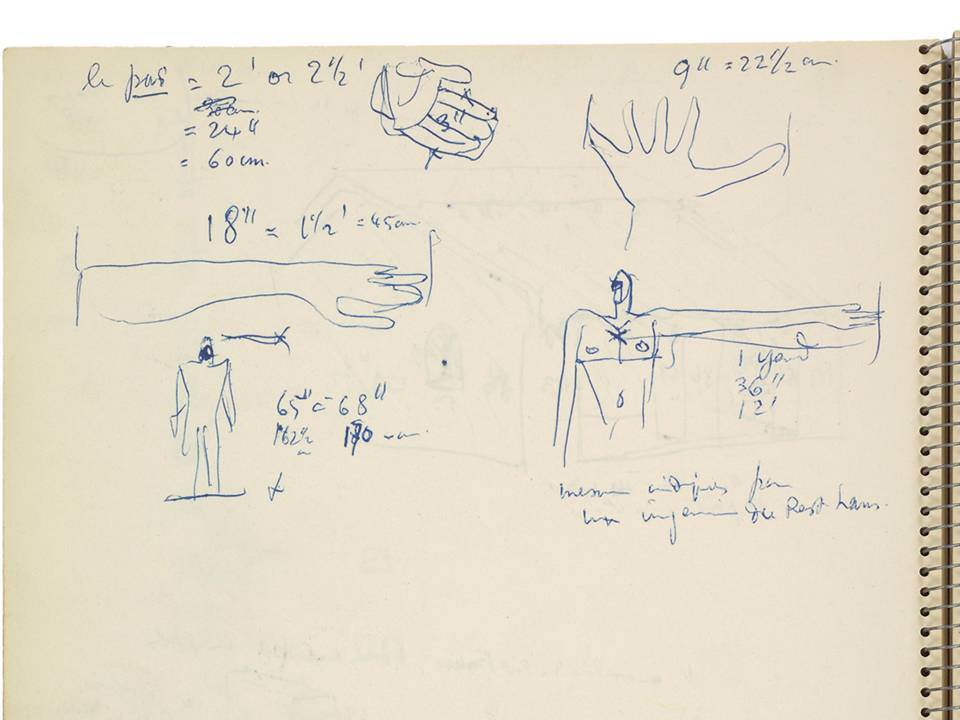 le pas = 2' or 2 1/2'
= 24"
= 60 cm.
3"
9" = 22 1/2 cm.
18" = 1 1/2' = 45 cm.
65" à 68"
162 1/2 180 cm.
1 yard
36"
12'
mesures indiquées par
un ingénieur du Rest house.